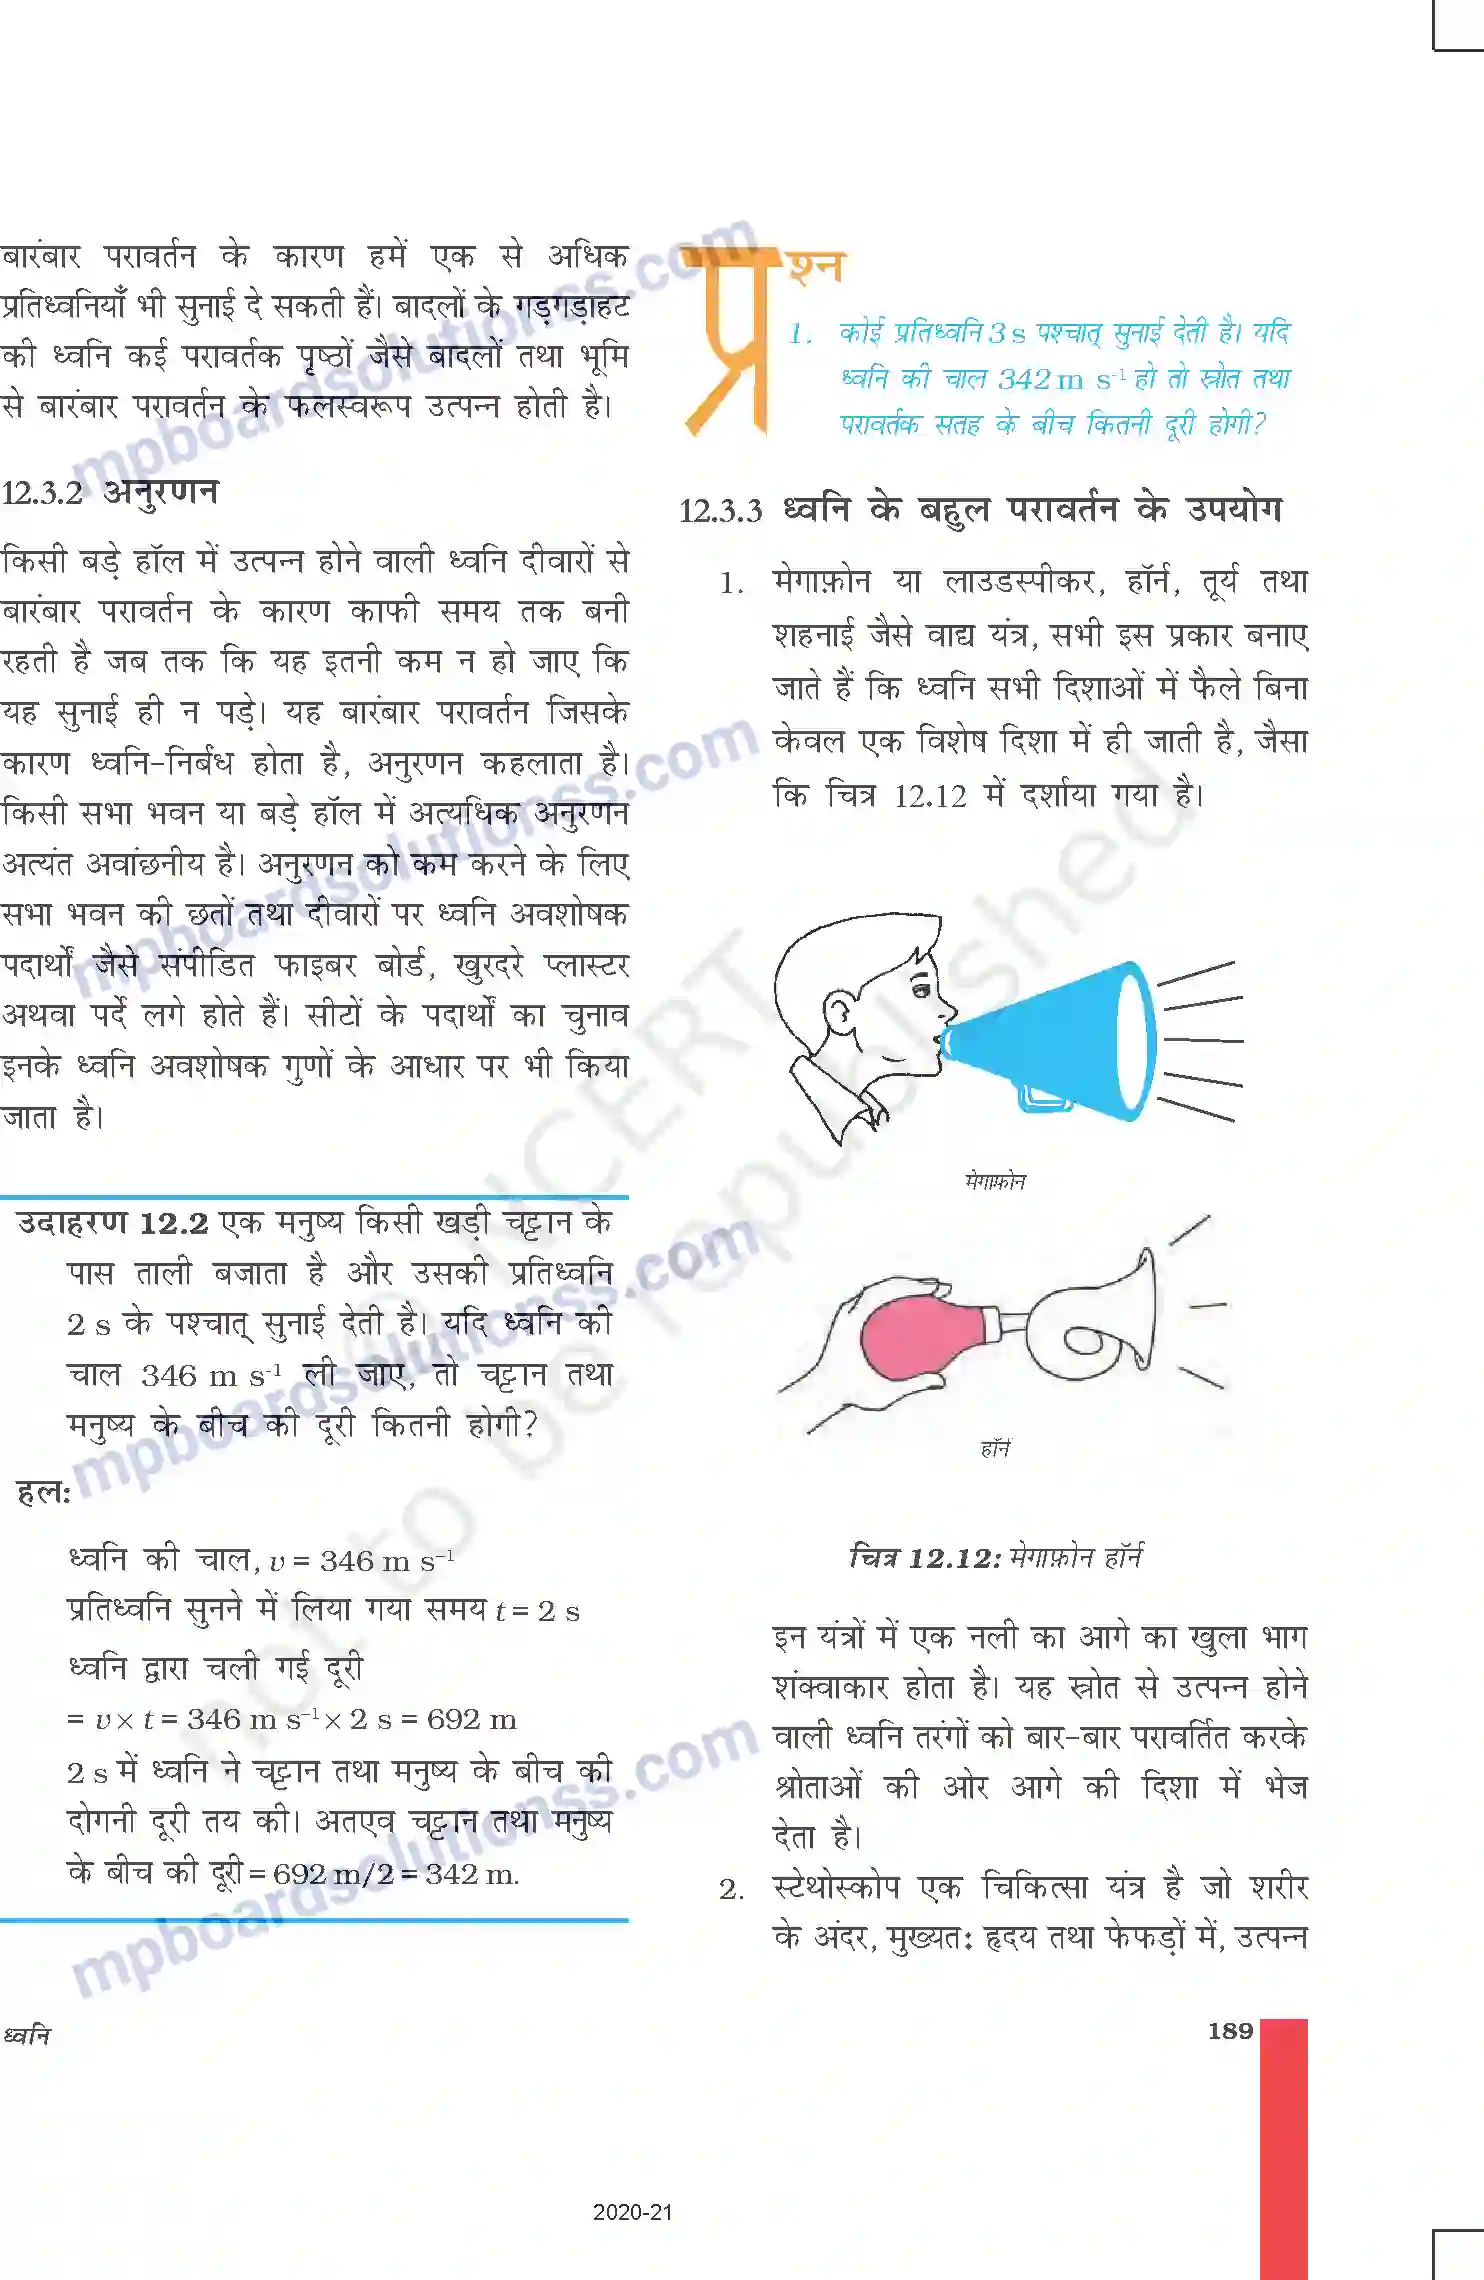 बारंबार परावर्तन के कारण हमें एक से अधिक
प्रतिध्वनियाँ भी सुनाई दे सकती हैं। बादलों के गड़गड़ाहट
की ध्वनि कई परावर्तक पृष्ठों जैसे बादलों तथा भूमि
से बारंबार परावर्तन के फलस्वरूप उत्पन्न होती है।
12.3.2 अनुरणन
किसी बड़े हॉल में उत्पन्न होने वाली ध्वनि दीवारों से
बारंबार परावर्तन के कारण काफी समय तक बनी
रहती है जब तक कि यह इतनी कम न हो जाए कि
यह सुनाई ही न पड़े। यह बारंबार परावर्तन जिसके
कारण ध्वनि-निर्बंध होता है, अनुरणन कहलाता है।
किसी सभा भवन या बड़े हॉल में अत्यधिक अनुरणन
अत्यंत अवांछनीय है। अनुरणन को कम करने के लिए
सभा भवन की छतों तथा दीवारों पर ध्वनि अवशोषक
पदार्थों जैसे संपीडित फाइबर बोर्ड, खुरदरे प्लास्टर
अथवा पर्दे लगे होते हैं। सीटों के पदार्थों का चुनाव
इनके ध्वनि अवशोषक गुणों के आधार पर भी किया
जाता है।
उदाहरण 12.2 एक मनुष्य किसी खड़ी चट्टान के
पास ताली बजाता है और उसकी प्रतिध्वनि
2 s के पश्चात् सुनाई देती है। यदि ध्वनि की
चाल 346 m s⁻¹ ली जाए, तो चट्टान तथा
मनुष्य के बीच की दूरी कितनी होगी?
हल:
ध्वनि की चाल, v = 346 m s⁻¹
प्रतिध्वनि सुनने में लिया गया समय t = 2 s
ध्वनि द्वारा चली गई दूरी
= v × t = 346 m s⁻¹ × 2 s = 692 m
2 s में ध्वनि ने चट्टान तथा मनुष्य के बीच की
दोगनी दूरी तय की। अतएव चट्टान तथा मनुष्य
के बीच की दूरी = 692 m/2 = 342 m.
प्रश्न
1. कोई प्रतिध्वनि 3 s पश्चात् सुनाई देती है। यदि
ध्वनि की चाल 342 m s⁻¹ हो तो स्रोत तथा
परावर्तक सतह के बीच कितनी दूरी होगी?
12.3.3 ध्वनि के बहुल परावर्तन के उपयोग
1. मेगाफ़ोन या लाउडस्पीकर, हॉर्न, तूर्य तथा
शहनाई जैसे वाद्य यंत्र, सभी इस प्रकार बनाए
जाते हैं कि ध्वनि सभी दिशाओं में फैले बिना
केवल एक विशेष दिशा में ही जाती है, जैसा
कि चित्र 12.12 में दर्शाया गया है।
मेगाफ़ोन
हॉर्न
चित्र 12.12: मेगाफ़ोन हॉर्न
इन यंत्रों में एक नली का आगे का खुला भाग
शंक्वाकार होता है। यह स्रोत से उत्पन्न होने
वाली ध्वनि तरंगों को बार-बार परावर्तित करके
श्रोताओं की ओर आगे की दिशा में भेज
देता है।
2. स्टेथोस्कोप एक चिकित्सा यंत्र है जो शरीर
के अंदर, मुख्यत: हृदय तथा फेफड़ों में, उत्पन्न
ध्वनि
189
2020-21
mpboardsolutionss.com
mpboardsolutionss.com
mpboardsolutionss.com
mpboardsolutionss.com
© NCERT
not to be republished